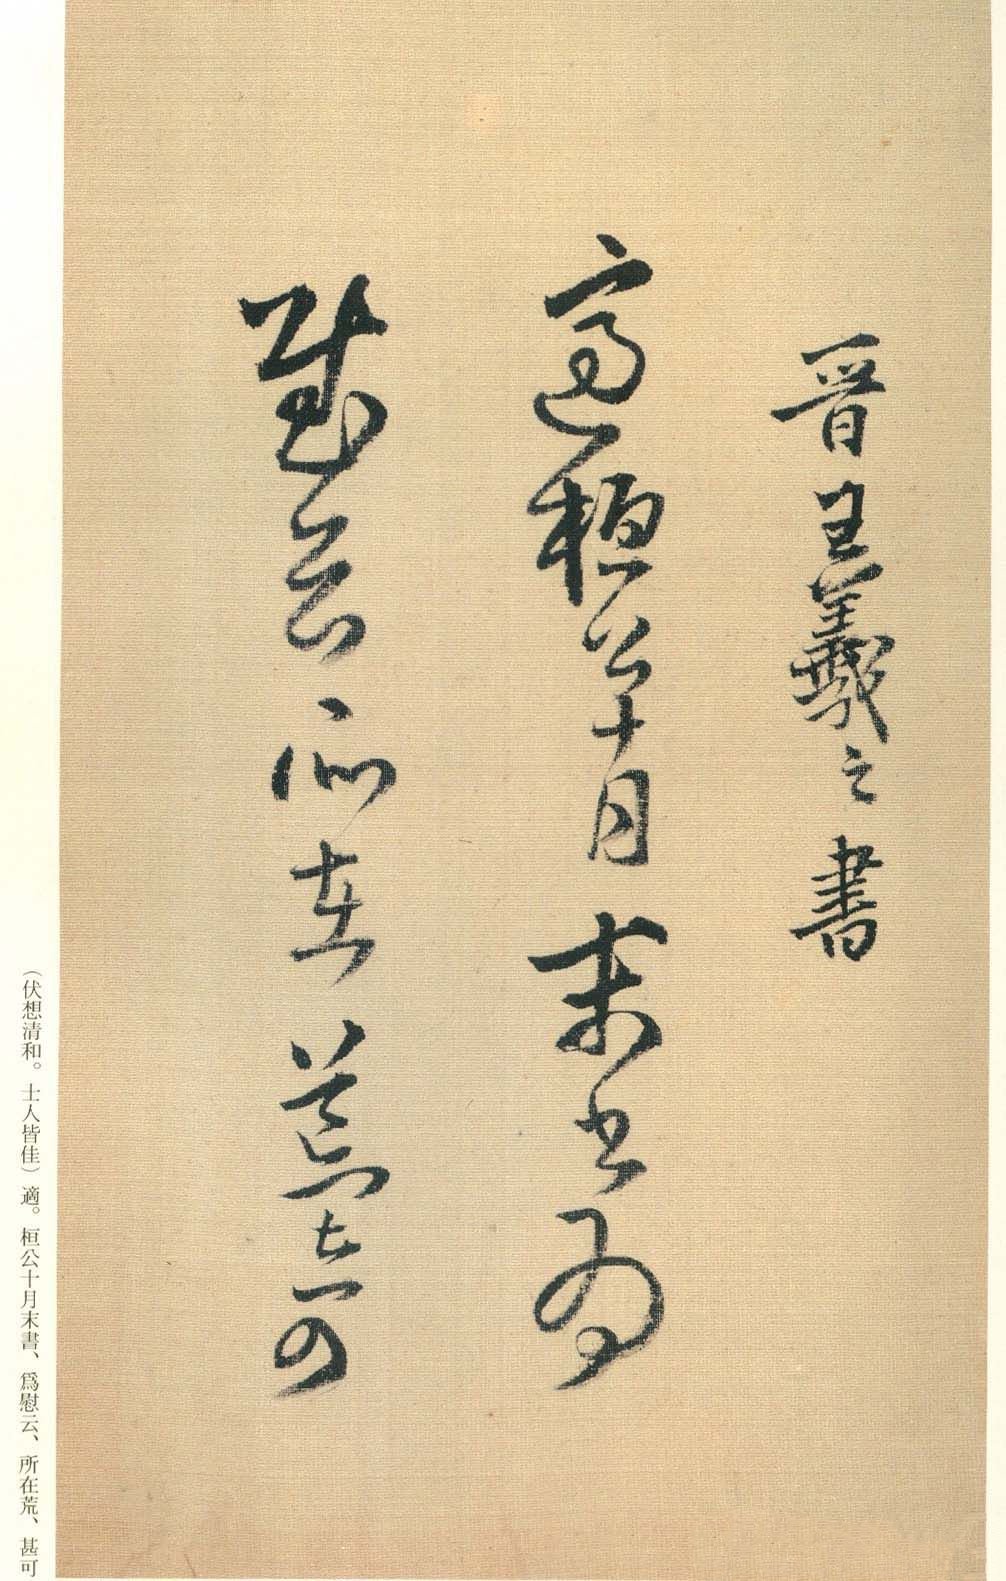 晋王羲之書
適桓公十月末書為
慰云所在荒甚可
(伏想清和。士人皆佳)適。桓公十月末書、爲慰云、所在荒、甚可